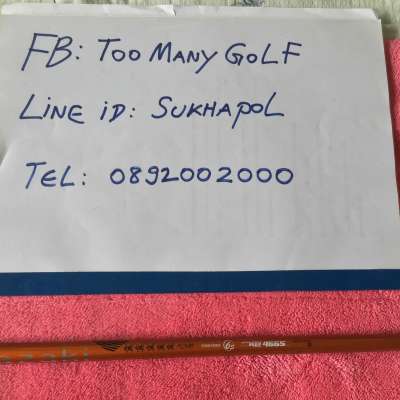 FB: TOO MANY GOLF
LINE iD: SUKHAPOL
TEL: 0892002000